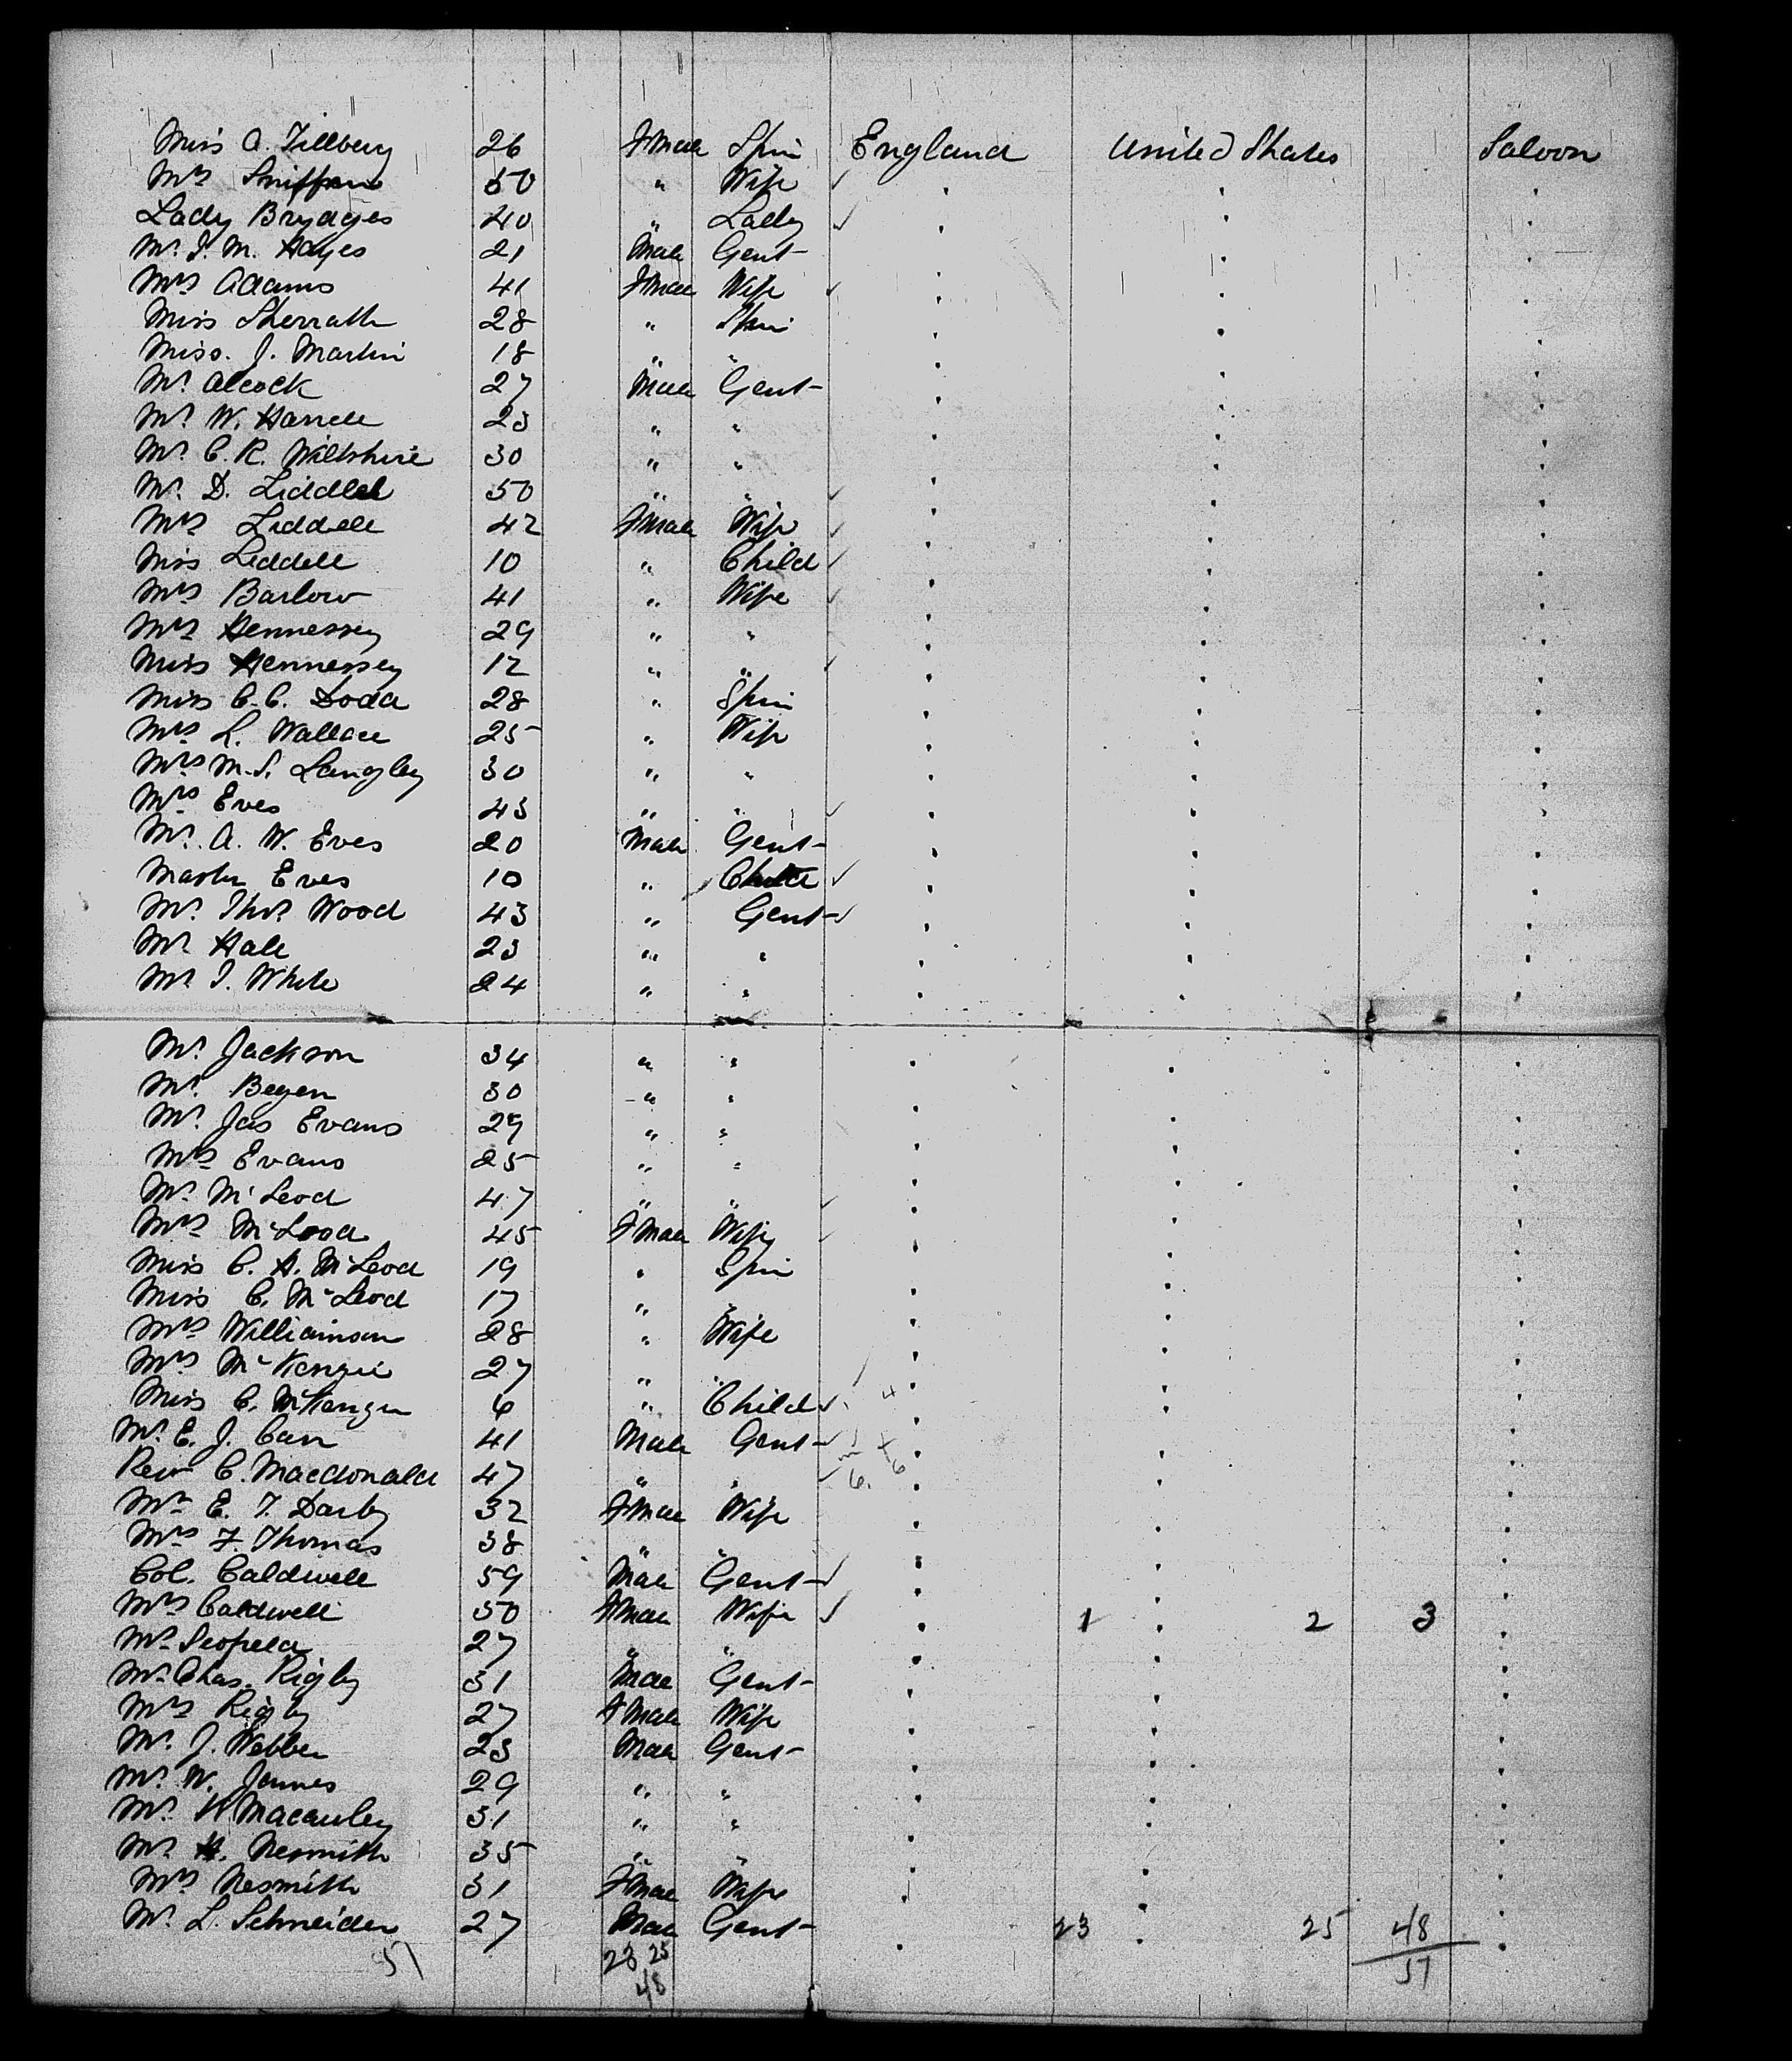 Miss A. Tillbery 26 Fmale Spin England United States Saloon
Mrs Sniffen 50 " Wife ✓ " " "
Lady Brydges 40 " Lady ✓ " " "
Mr. J. M. Hayes 21 Male Gent " " "
Mrs Adams 41 Fmale Wife ✓ " " "
Miss Sherratt 28 " Spin " " "
Miss. J. Martin 18 " " " " "
Mr. Alcock 27 Male Gent " " "
Mr. W. Harrell 23 " " " " "
Mr. C. R. Wiltshire 30 " " " " "
Mr. D. Liddell 50 " " ✓ " " "
Mrs Liddell 42 Fmale Wife ✓ " " "
Miss Liddell 10 " Child ✓ " " "
Mrs Barlow 41 " Wife ✓ " " "
Mrs Hennessey 29 " " " " "
Miss Hennessey 12 " " ✓ " " "
Miss C. C. Dodd 28 " Spin " " "
Mrs L. Wallace 25 " Wife " " "
Mrs M. S. Langley 30 " " " " "
Mrs Eves 43 " " ✓ " " "
Mr. A. W. Eves 20 Male Gent " " "
Master Eves 10 " Child ✓ " " "
Mr. Thos. Wood 43 " Gent ✓ " " "
Mr. Hall 23 " " " " "
Mr. J. White 24 " " " " "
Mr. Jackson 34 " " " " "
Mr. Begen 30 " " " " "
Mr. Jas Evans 29 " " " " "
Mrs Evans 25 " " " " "
Mr. McLeod 47 " " ✓ " " "
Mrs McLeod 45 Fmale Wife ✓ " " "
Miss C. H. McLeod 19 " Spin " " "
Miss C. McLeod 17 " " " " "
Mrs Williamson 28 " Wife " " "
Mrs McKenzie 27 " " ✓ " " "
Miss C. McKenzie 6 " Child ✓ 4 " " "
Mr. E. J. Carr 41 Male Gent ✓ " " "
Rev C. Macdonald 47 " " ✓ 6. 6 " " "
Mrs E. T. Darby 32 Fmale Wife " " "
Mrs F. Thomas 38 " " " " "
Col. Caldwell 59 Male Gent ✓ " " "
Mrs Caldwell 50 Fmale Wife ✓ " 1 " 2 3 "
Mrs 27 " " " " "
Mr. Chas. Rigby 31 Male Gent " " "
Mrs Rigby 27 Fmale Wife " " "
Mr. J. Webber 23 Male Gent " " "
Mr. W. James 29 " " " " "
Mr. K Macauley 31 " " " " "
Mr. H. Nesmith 35 " " " " "
Mrs Nesmith 31 Fmale Wife " " "
Mr. L. Schneider 27 Male Gent " 23 " 25 48 "
51 23 25 51
48